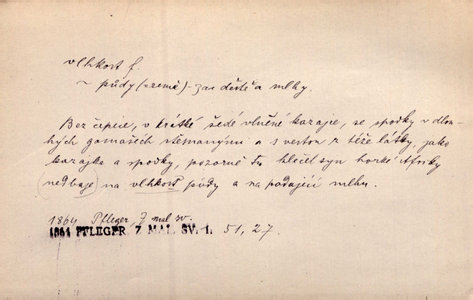 vlhkost f.
~ půdy (země) - za deště a mlhy.
Bez čepice, v krátké šedé vlněné kazajce, se spodky v dlou-
hých gamaších vtěsnanými a s vestou z téže látky, jako
kazajka a spodky, pozorně tu klečel syn horké Afriky
nedbaje na vlhkost půdy a na padající mlhu.
1864 Pfleger, Z mal. sv.
1864 PFLEGER, Z MAL. SV. 1. 51, 27.